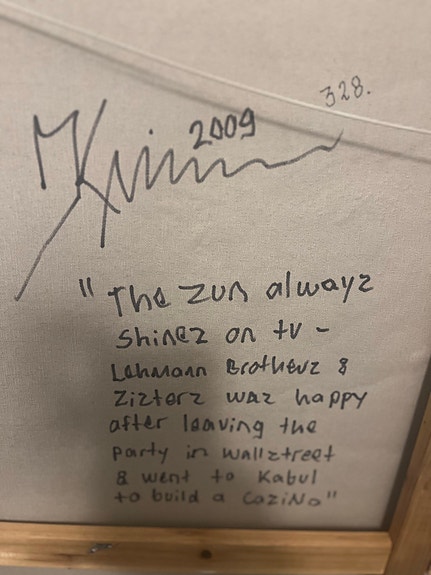 328.
2009
"The zun alwayz
shinez on tv -
Lehmann Brotherz &
Zizterz waz happy
after leaving the
party in wallztreet
& went to Kabul
to build a cazino"